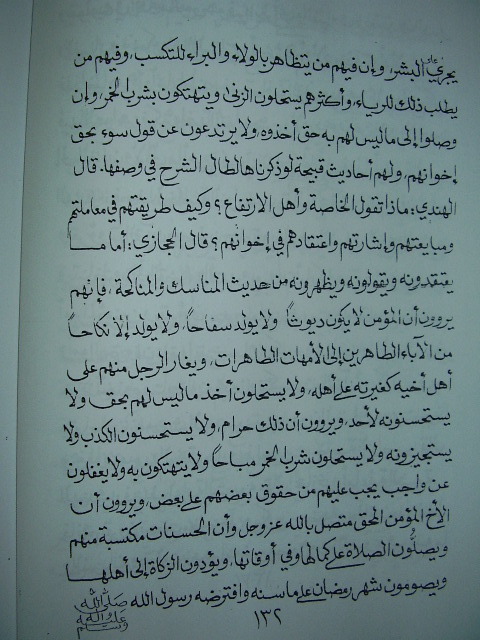 يجري عادة البشر، وإن فيهم من يتظاهر بالولاء والبراء للتكسب، وفيهم من
يطلب ذلك للرياء، وأكثرهم يستحلون الزنى ويتهتكون بشرب الخمر، وإن
وصلوا إلى ما ليس لهم به حق أخذوه، ولا يرتدعون عن قول سوء بحق
إخوانهم، ولهم أحاديث قبيحة لو ذكرناها لطال الشرح في وصفها. قال
الهندي: ماذا تقول الخاصة وأهل الارتفاع؟ وكيف طريقتهم في معاملتهم
ومبايعتهم وإشارتهم واعتقادهم في إخوانهم؟ قال الحجازي: أما ما
يعتقدونه ويقولونه ويظهرونه من حديث المناسك والمناكحة، فإنهم
يروون أن المؤمن لا يكون ديوثاً ولا يولد سفاحاً، ولا يولد إلا نكاحاً
من الآباء الطاهرين إلى الأمهات الطاهرات، ويغار الرجل منهم على
أهل أخيه كغيرته على أهله، ولا يستحلون أخذ ما ليس لهم بحق ولا
يستحسنونه لأحد، ويروون أن ذلك حرام، ولا يستحسنون الكذب ولا
يستجيزونه ولا يستحلون شرب الخمر مباحاً ولا يتهتكون به ولا يغفلون
عن واجب يجب عليهم من حقوق بعضهم على بعض، ويروون أن
الأخ المؤمن المحق متصل بالله عز وجل وأن الحسنات مكتسبة منهم
ويصلون الصلاة على كمالها وفي أوقاتها، ويؤدون الزكاة إلى أهلها
ويصومون شهر رمضان على ما سنه وافترضه رسول الله صلى الله عليه وآله وسلم
١٣٢